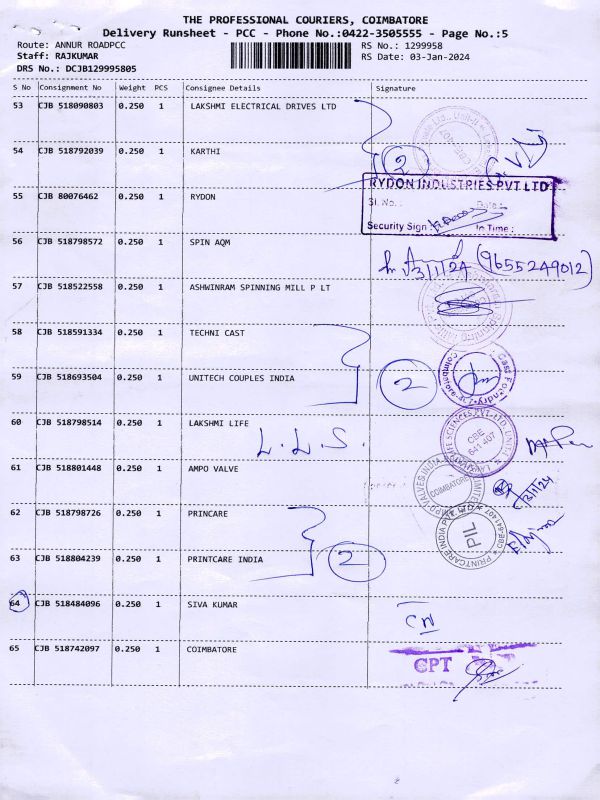 THE PROFESSIONAL COURIERS, COIMBATORE
Delivery Runsheet - PCC - Phone No.:0422-3505555 - Page No.:5
Route: ANNUR ROADPCC RS No.: 1299958
Staff: RAJKUMAR RS Date: 03-Jan-2024
DRS No.: DCJB129995805
S No Consignment No Weight PCS Consignee Details Signature
53 CJB 518090803 0.250 1 LAKSHMI ELECTRICAL DRIVES LTD
54 CJB 518792039 0.250 1 KARTHI 2
55 CJB 80076462 0.250 1 RYDON
RYDON INDUSTRIES PVT LTD
Sl. No. : Date :
Security Sign : In Time :
56 CJB 518798572 0.250 1 SPIN AQM
3/1/24 (9655249012)
57 CJB 518522558 0.250 1 ASHWINRAM SPINNING MILL P LT
58 CJB 518591334 0.250 1 TECHNI CAST
59 CJB 518693504 0.250 1 UNITECH COUPLES INDIA 2
60 CJB 518798514 0.250 1 LAKSHMI LIFE
L.L.S.
CBE
641 407
61 CJB 518801448 0.250 1 AMPO VALVE
COIMBATORE
3/1/24
62 CJB 518798726 0.250 1 PRINCARE
PRINTCARE INDIA PVT. LTD
PIL
63 CJB 518804239 0.250 1 PRINTCARE INDIA 2
64 CJB 518484096 0.250 1 SIVA KUMAR
CN
65 CJB 518742097 0.250 1 COIMBATORE
CPT